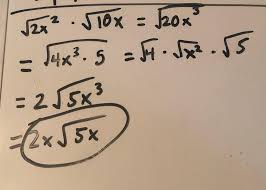 √2x² · √10x = √20x³
= √4x³ · 5 = √4 · √x² · √5
= 2√5x³
= 2x√5x